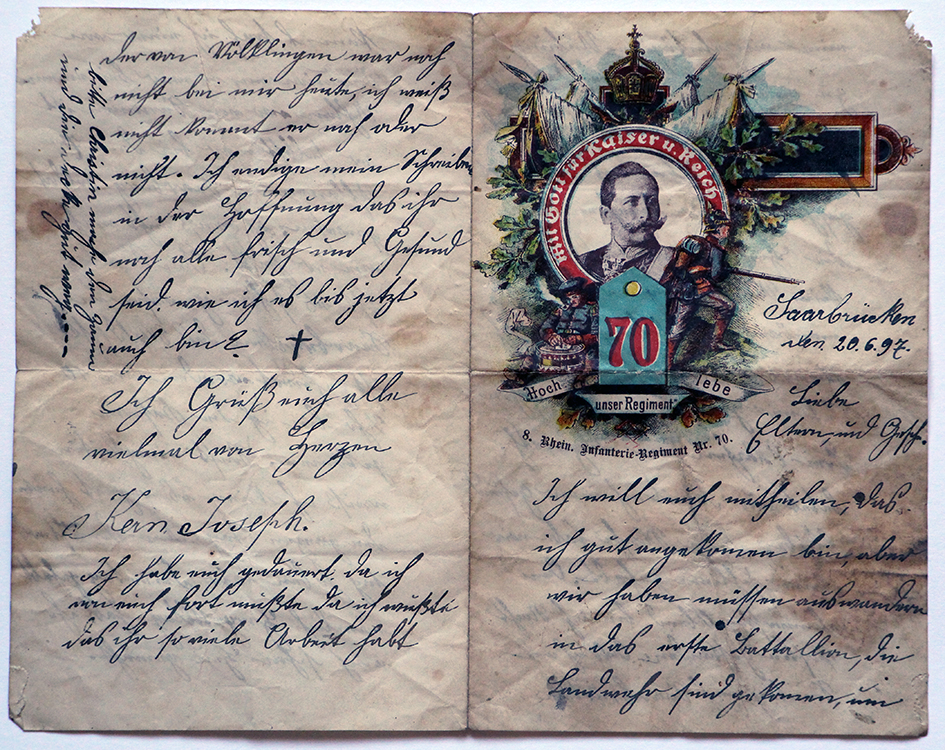 Mit Gott für Kaiser u. Reich
70
Hoch lebe
unser Regiment
8. Rhein. Infanterie-Regiment Nr. 70.
Saarbrücken
den 20.6.97.
Liebe
Eltern und Gesch.
Ich will euch mittheilen, das
ich gut angekomen bin, aber
wir haben müssen auswandern
in das erste Battallion, die
Landwehr sind gekomen, um
der von Völklingen war noch
nicht bei mir heute, ich weiß
nicht kommt er noch oder
nicht. Ich endige mein Schreiben
in der Hoffnung das ihr
noch alle frisch und Gesund
seid. wie ich es bis jetzt
auch bin? +
Ich Grüß euch alle
vielmal von Herzen
Kern Joseph.
Ich habe euch gedauert, da ich
von euch fort mußte da ich wußte
das ihr so viele Arbeit habt
bitte
und die